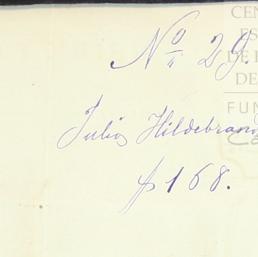 No 29.
CEN
ES
DE
DE
FUN
Julio Hildebran
$168.